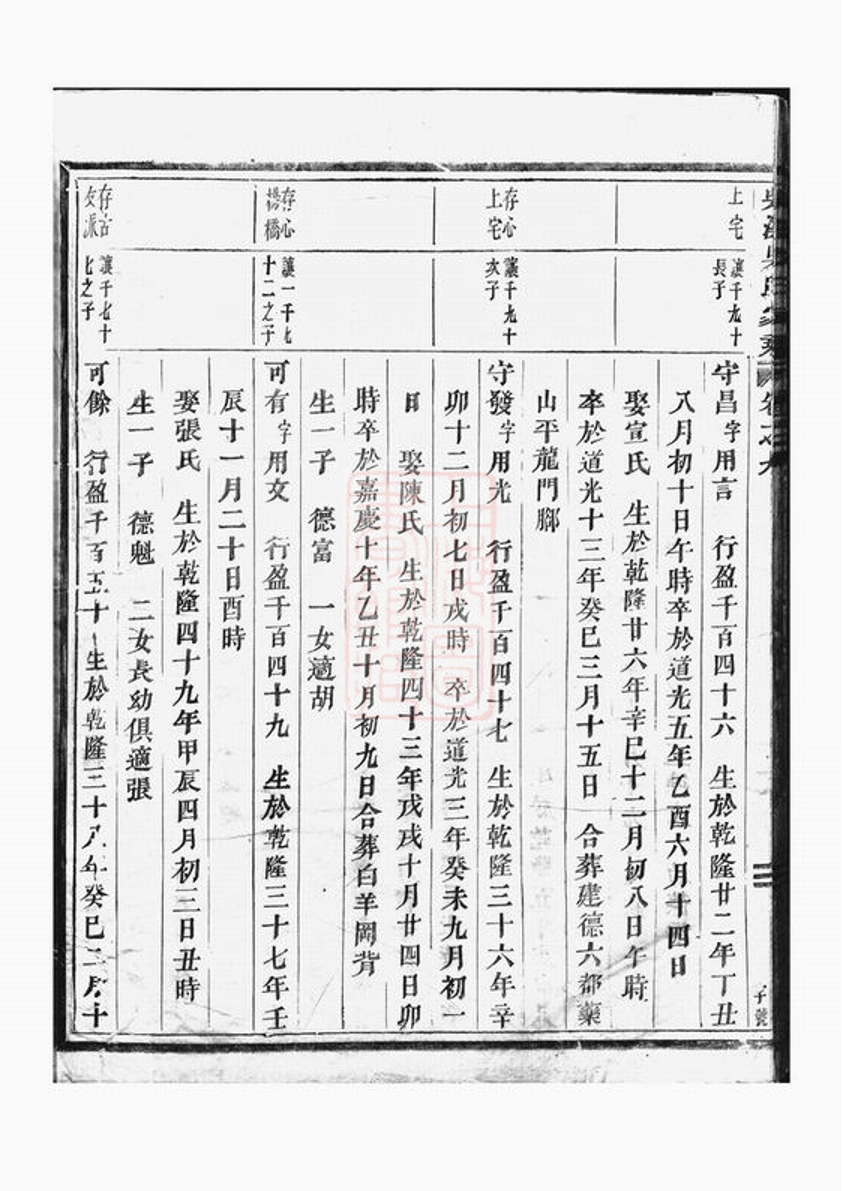 吳氏家乘 卷之九
子號
上宅
讓千九十
長子
守昌字用言 行盈千百四十六 生於乾隆廿二年丁丑
八月初十日午時卒於道光五年乙酉六月十四日
娶宣氏 生於乾隆廿六年辛巳十二月初八日午時
卒於道光十三年癸巳三月十五日 合葬建德六都藥
山平龍門腳
存心
上宅
讓千九十
次子
守發字用光 行盈千百四十七 生於乾隆三十六年辛
卯十二月初七日戌時 卒於道光三年癸未九月初一
日 娶陳氏 生於乾隆四十三年戊戌十月廿四日卯
時卒於嘉慶十年乙丑十月初九日合葬白羊岡背
生一子 德富 一女適胡
存心
楊橋
讓一千七
十二之子
可有字用文 行盈千百四十九 生於乾隆三十七年壬
辰十一月二十日酉時
娶張氏 生於乾隆四十九年甲辰四月初三日丑時
生一子 德魁 二女長幼俱適張
存古
文派
讓千七十
七之子
可餘 行盈千百五十 生於乾隆三十八年癸巳二月十